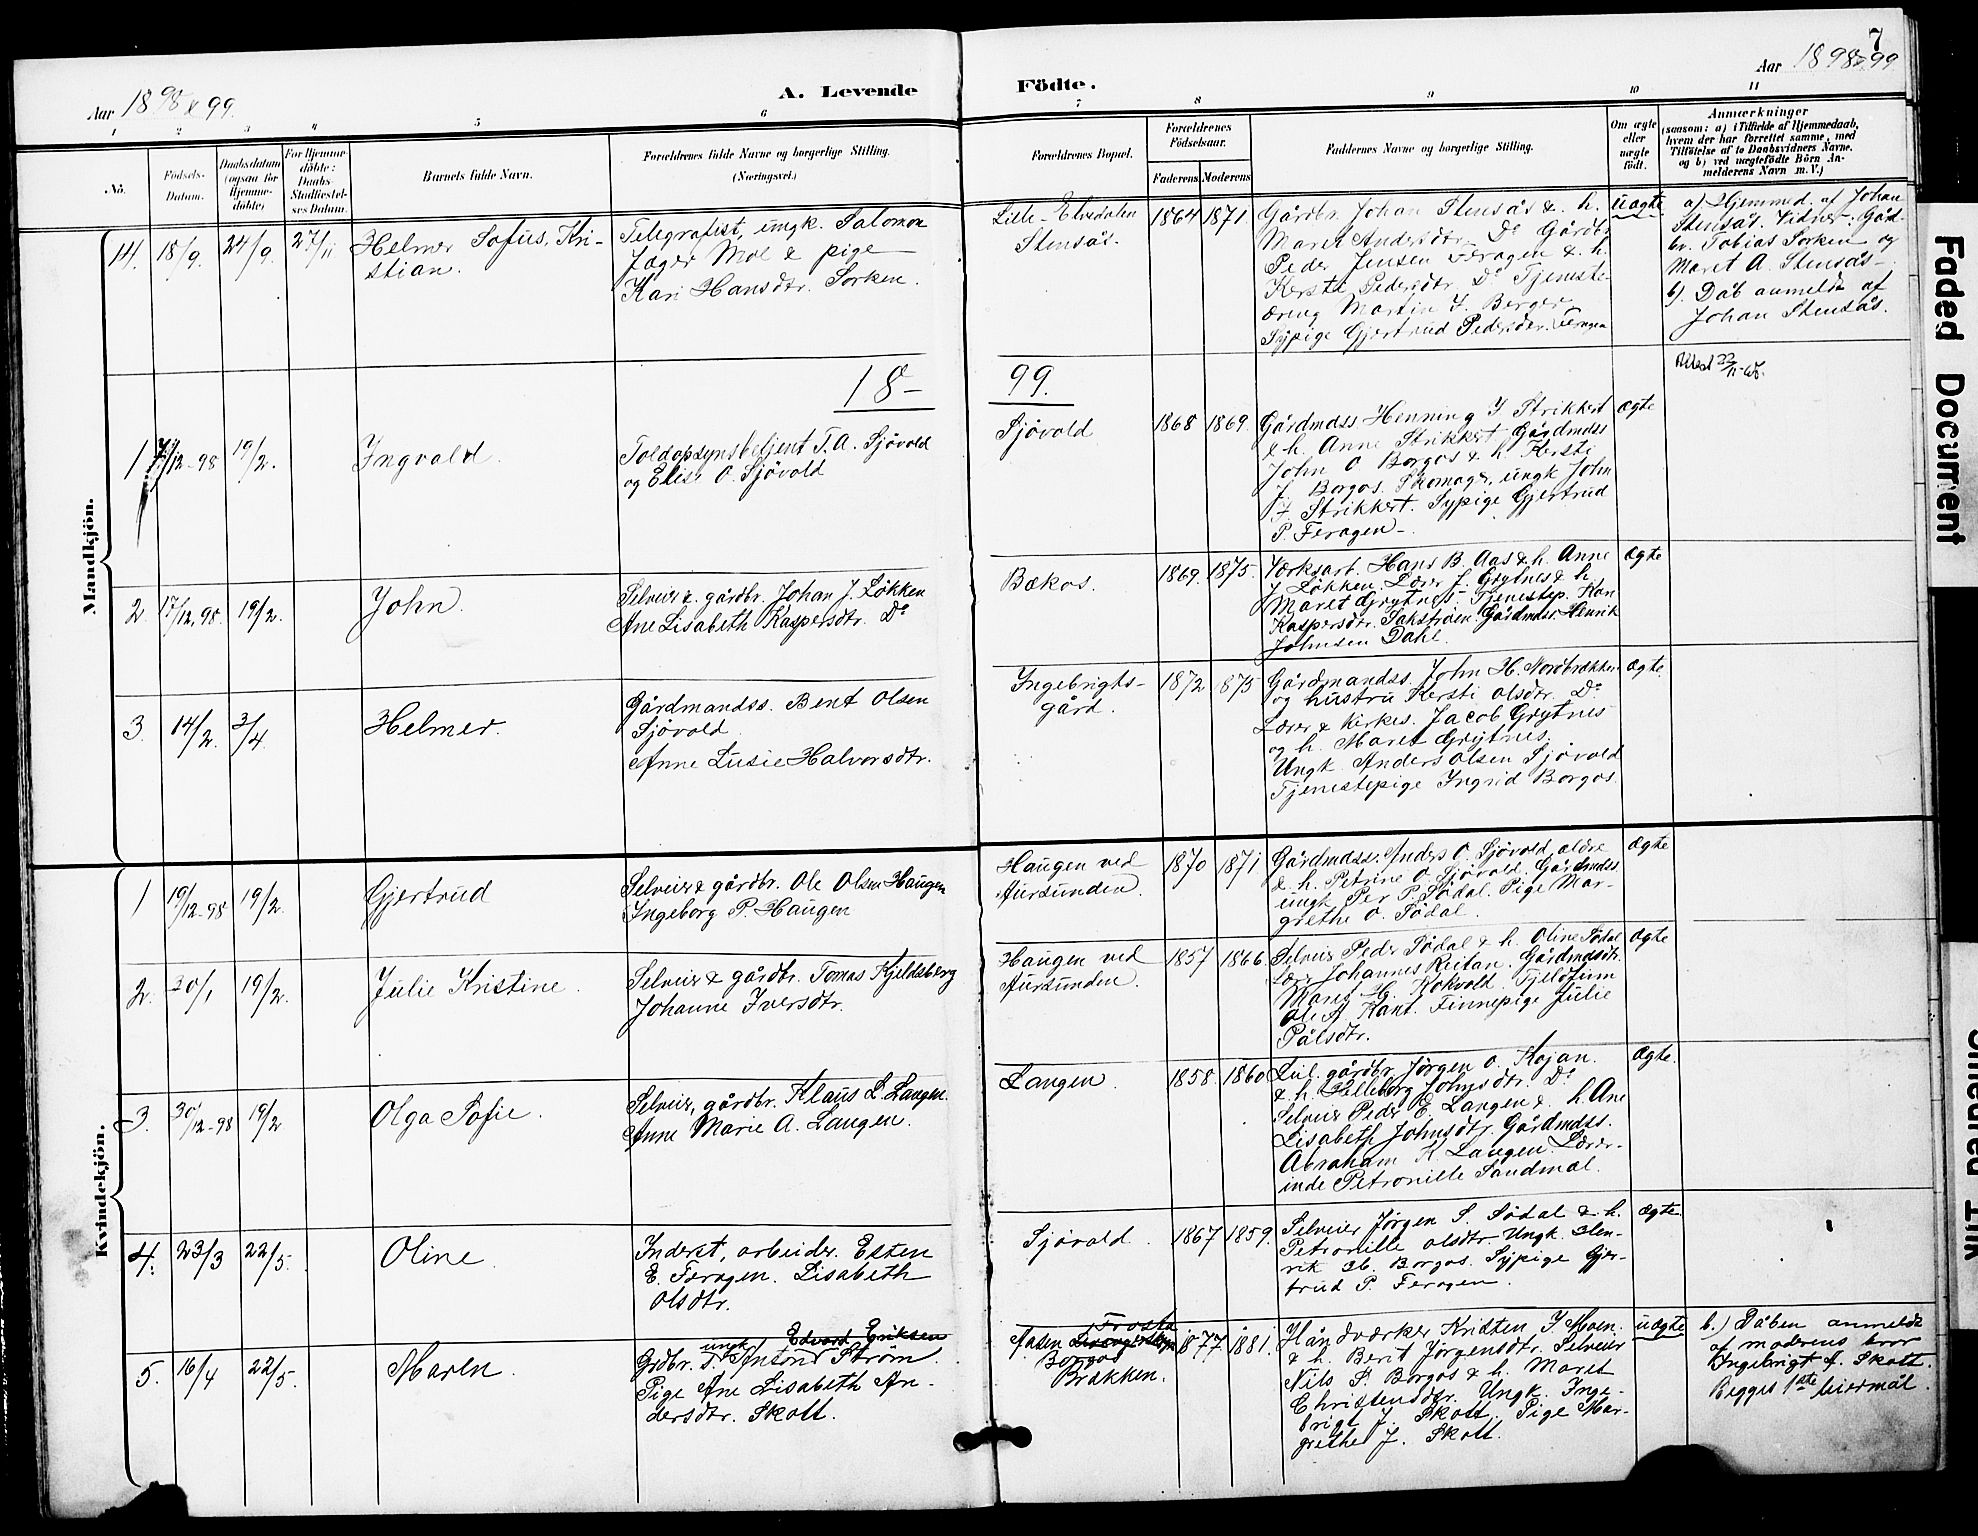 7
Aar 1898 & 99.
A. Levende
Födte.
Aar 1898 & 99
1 2 3 4 5 6 7 8 9 10 11
No.
Födsels-
Datum.
Daabsdatum
(ogsaa for
Hjemme-
döbte)
For Hjemme-
döbte:
Daabs-
Stadfæstel-
ses Datum.
Barnets fulde Navn.
Forældrenes fulde Navne og borgerlige Stilling.
(Næringsvei.)
Forældrenes Bopæl.
Forældrenes
Födselsaar.
Faderens Moderens
Faddernes Navne og borgerlige Stilling.
Om ægte
eller
uægte
födt.
Anmærkninger
(saasom: a) i Tilfælde af Hjemmedaab,
hvem der har forrettet samme, med
Tilföielse af to Daabsvidners Navne.
og b) ved uægtefödte Börn An-
melderens Navn m. V.)
Mandkjön.
14. 18/9. 24/9. 27/11
Helmer Sofus Kri-
stian.
Telegrafist, ungk. Salomon
Jager Moe & pige
Kari Hansdtr. Sorken.
Lille-Elvedalen
Stensås.
1864 1871
Gårdbr. Johan Stensås & h.
Maret Andersdtr. Do Gårdbr.
Peder Jensen Feragen & h.
Kersti Pedersdtr. Do Tjeneste-
dreng Martin J. Berger
Sypige Gjertrud Pedersdtr. Feragen
uægte
a) Hjemmed. af Johan
Stensås. Vidner: Gård-
br. Tobias Sorken og
Maret A. Stensås-
b). Dåb anmeldt af
Johan Stensås.
18-
99.
1 12-98 19/2.
Ingvald.
Toldopsynsbetjent T. A. Sjövold
og Elise O. Sjövold
Sjövold
1868 1869.
Gårdmdss. Henning J. Strikkert
& h. Anne Strikkert. Gårdmdss
John O Borgos & h. Kersti
J. Borgos. Skomager, ungk John
J. Strikkert. Sypige Gjertrud
P. Feragen-
ægte
2 17/12, 98. 19/2.
John.
Selveier & gårdbr. Johan J. Løkken
Ane Lisabeth Kaspersdtr. Do
Bækos.
1869. 1875.
Værksarb. Hans B. Aas & h. Anne
J Løkken. Lærer J. Grytnes & h.
Maret Grytnes. Tjenestep. Kari
Kaspersdtr. Sakstroen. Gårdmdss. Henrik
Johnsen Dahl.
ægte
3. 14/2. 3/4.
Helmer.
Gårdmandss. Bent Olsen
Sjövold
Anne Lusie Halvorsdtr.
Ingebrigts-
gård.
1872 1875
Gårdmandss. John H. Nordbrækken
og hustru Kersti Olsdtr. Do
Lærer & kirkes. Jacob Grytnes
og h. Maret Grytnes.
Ungk. Anders Olsen Sjövold
Tjenestepige Ingrid Borgos.
ægte.
Kvindekjön.
1 19/12-98 19/2.
Gjertrud
Selveier & gårdbr. Ole Olsen Haugen
Ingeborg P. Haugen
Haugen ved
Aursunden.
1870 1871
Gårdmdss. Anders O. Sjövold ældre
& h. Petrine O. Sjövold. Gårdmdss.
ungk Per P. Sødal. Pige Mar-
grethe O. Sødal.
ægte
2. 30/1 19/2.
Julie Kristine.
Selveier & gårdbr. Tomas Kjeldsberg
Johanne Iversdtr.
Haugen ved
Aursunden.
1857 1866.
Selveier Peder Sødal & h. Oline Sødal
Lærer Johannes Reitan. Gårdmdsdtr.
Maret H. Kokvold. Fjeldfinn
Ole A. Kant. Finnepige Julie
Pålsdtr.
ægte
3. 30/12-98 19/2
Olga Sofie.
Selveier, gårdbr. Klaus L. Langen.
Anne Marie A. Langen.
Langen.
1858. 1860
gårdbr. Jørgen O. Kojan.
& h. Johnsdtr. Do
Selveier Peder E. Langen & h. Ane
Lisabeth Johnsdtr. Gårdmdss.
Abraham K. Langen. Lærer-
inde Petronille Sandmæl.
ægte.
4. 23/3 22/5.
Oline
Inderst, arbeider. Esten
E. Feragen. Lisabeth
Olsdtr.
Sjövold.
1867 1859.
Selveier Jørgen S. Sødal & h.
Petronille Olsdtr. Ungk. Hen-
rik H. Borgos. Sypige Gjer-
trud P. Feragen.
ægte.
5. 16/4 22/5.
Maren
ungk Edvard Eriksen
Grdbr. Anton Strøm.
Pige Ane Lisabeth An-
dersdtr. Skott.
Aasen
Borgos
Brækken.
1877 1881.
Håndværker Kristen J. Moen.
& h. Berit Jørgensdtr. Selveier
Nils P. Borgos & h. Maret
Christensdtr. Ungk. Inge-
brigt J. Skott. Pige Mar-
grethe J. Skott.
uægte
b.) Dåben anmeldt
af moderens bror
Ingebrigt J. Skott.
Begges 1ste leiermål.
Faded Document